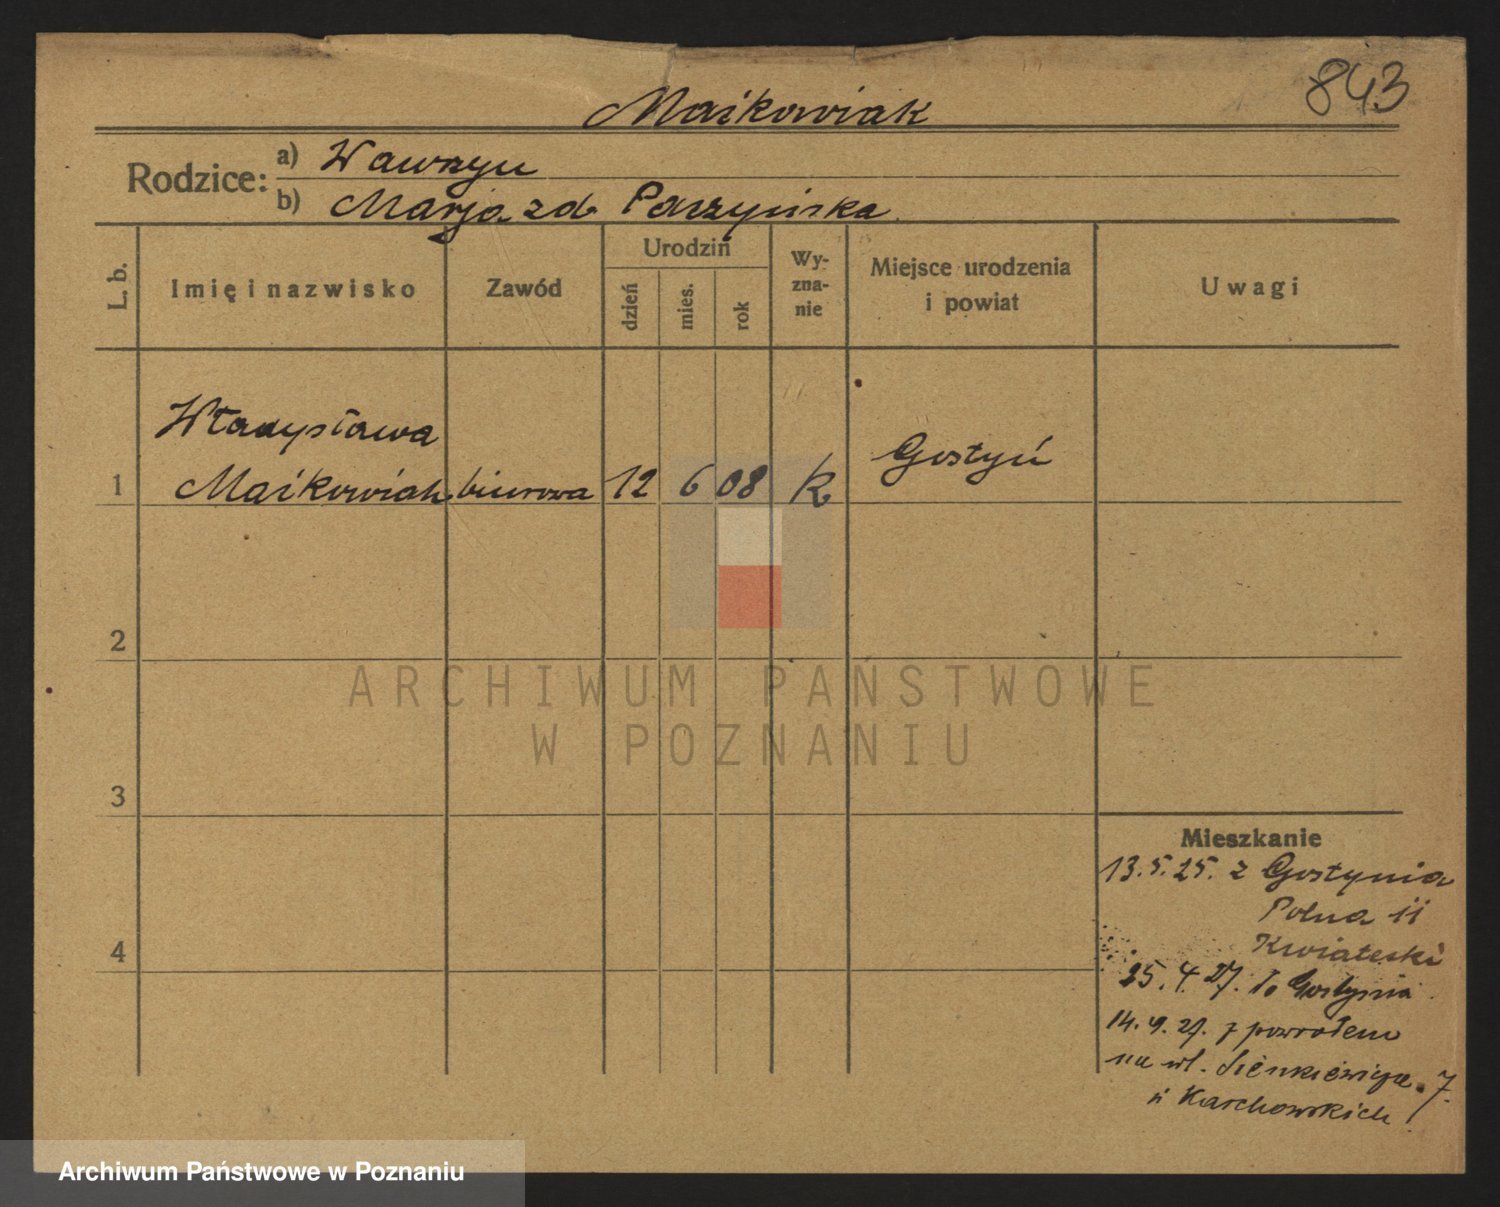 843
Maikowiak
Rodzice: a) Wawrzyn
b) Marja zd Parzyńska
L. b.
Imię i nazwisko
Zawód
Urodziń
dzień
mies.
rok
Wy-
zna-
nie
Miejsce urodzenia
i powiat
Uwagi
Władysława
1 Maikowiak biurowa 12 6 08 k Gostyń
2
3
4
Mieszkanie
13.5.25. z Gostynia
Polna 11
Kwiatecki
25.4.27. do Gostynia
14.9.27. z powrotem
na ul. Sienkiewicza 7.
u Karchowskich
ARCHIWUM PAŃSTWOWE
W POZNANIU
Archiwum Państwowe w Poznaniu